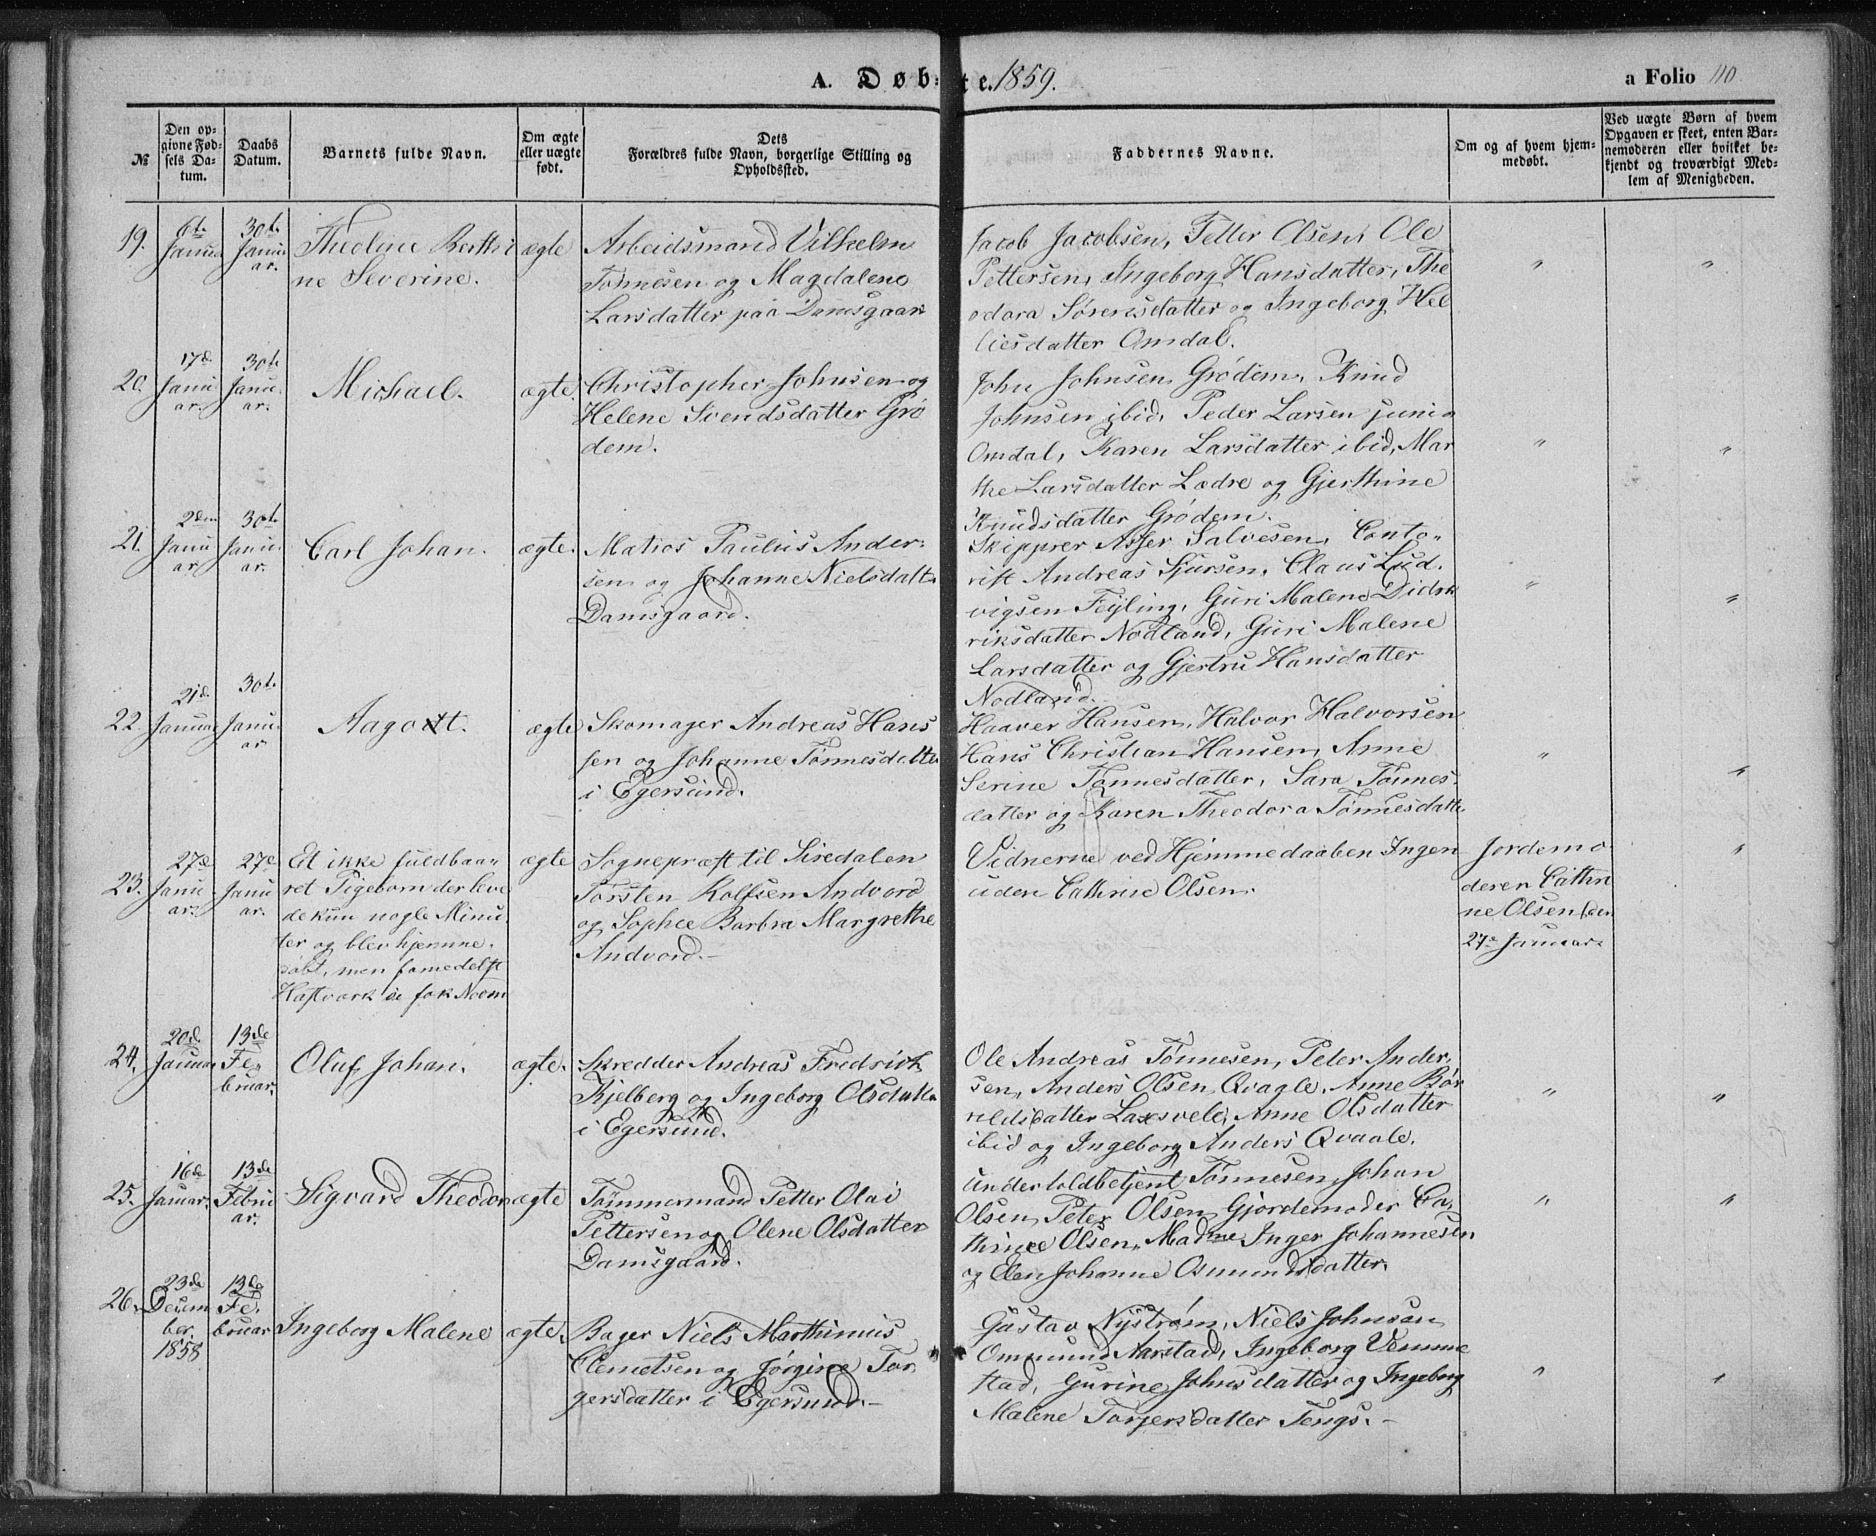 A. Døbte. 1859.
a Folio 110
№
Den op-
givne Fød-
sels Da-
tum.
Daabs
Datum.
Barnets fulde Navn.
Om ægte
eller uægte
født.
Dets
Forældres fulde Navn, borgerlige Stilling og
Opholdssted.
Faddernes Navne.
Om og af hvem hjem-
medøbt.
Ved uægte Børn af hvem
Opgaven er skeet, enten Bar-
nemoderen eller hvilket be-
kjendt og troværdigt Med-
lem af Menigheden.
19.
6te
Januar
30te
Janu
ar.
Theoline Berthi
ne Severine.
ægte
Arbeidsmand Vilhelm
Tønnesen og Magdalene
Larsdatter paa Damsgaard
Jacob Jacobsen, Petter Olsen, Ole
Pettersen, Ingeborg Hansdatter, The
odora Sørensdatter og Ingeborg Hel
liesdatter Omdal.
"
"
20.
17de
Janu
ar.
30te
Janu
ar.
Michael.
ægte.
Christopher Johnsen og
Helene Svendsdatter Grø
dem.
John Johnsen Grødem, Knud
Johnsen ibid, Peder Larsen junior
Omdal, Karen Larsdatter ibid, Mar
the Larsdatter Lædre og Gjerthine
Knudsdatter Grødem.
"
"
21.
2den
Janu
ar.
30te
Janu
ar.
Carl Johan.
ægte.
Matios Paulus Ander-
sen og Johanne Nielsdatt.
Damsgaard.
Skipprer Asser Salvesen, Conto-
rist Andreas Sjursen, Claus Lud.
vigsen Feyling, Guri Malene Didrik
riksdatter Nodland, Guri Malene
Larsdatter og Gjertru Hansdatter
Nodland.
"
"
22.
21de
Januar
30te
Janu
ar.
Aagott.
ægte
Skomager Andreas Hans
sen og Johanne Tønnesdatter
i Egersund.
Haaver Hansen, Halvor Halvorsen
Hans Christian Hansen, Anne
Serine Tønnesdatter, Sara Tønnes-
datter og Karen Theodora Tønnesdatte
"
"
23.
27de
Janu
ar.
27de
Janu
ar.
Et ikke fuldbaa-
ret Pigebarn der leve
de kun nogle Minu-
ter og blev hjemme-
døbt, men formedelst
Hastværk
ægte
Sognepræst til Siredalen
Torsten Rolfsen Andvord
og Sophie Barbra Margrethe
Andvord.
Vidnerne ved Hjemmedaaben Ingen
uden Cathrine Olsen.
Jordemo
deren Cathri
ne Olsen den
27de Januar.
"
24.
20de
Januar
13de
Fe-
bruar.
Oluf Johan.
ægte.
Skredder Andreas Fredrich
Kjelberg og Ingeborg Olsdatter
i Egersund.
Ole Andreas Tønnesen, Peter Ander,
sen, Anders Olsen Qvagle, Anne Bør
reldsdatter Laxsvele, Anne Olsdatter
ibid og Ingeborg Anders Qvaale.
"
"
25.
16de
Januar.
13de
Febru
ar.
Sigvard Theodor
ægte
Tømmermand Petter Olai
Pettersen og Olene Olsdatter
Damsgaard.
Undertoldbetjent Tønnesen, Johan
Olsen, Peter Olsen, Gjordemoder Ca,
thrine Olsen, Madme Inger Johannesen
og Elen Johanne Osmundsdatter.
"
"
26.
23de
Desem
ber.
1858
13de
Fe.
bruar
Ingeborg Malene
ægte.
Bager Niels Marthinius
Clemetsen og Jørgine Tor
gersdatter i Egersund.
Gustav Nystrøm, Niels Johnsen
Ommund Aarstad, Ingeborg Vemme
stad, Gurine Johnsdatter og Ingeborg
Malene Torgersdatter Tengs.
"
"